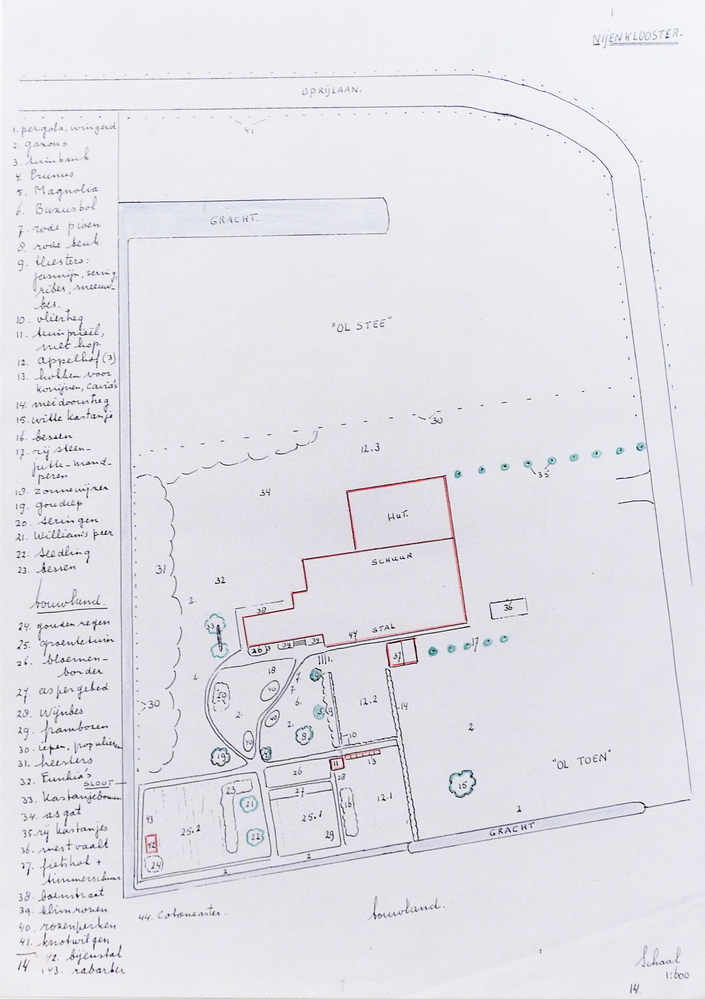 NIJENKLOOSTER.
OPRIJLAAN.
41
1. pergola, wingerd
2. gazons
3. tuinbank
4. Prunus
5. Magnolia
6. Buxusbol
7. rode pioen
8. rode beuk
9. Heesters:
jasmijn, sering,
ribes, sneeuw-
bes.
10. vlierheg
11. tuinprieël,
met hop
12. appelhof (3)
13. hokken voor
konijnen, cavia's
14. meidoornheg
15. witte kastanje
16. bessen
17. rij steen-
jutte-mand-
peren
18. zonnewijzer
19. goudiep
20. seringen
21. William's peer
22. Seedling
23. bessen
bouwland.
24. gouden regen
25. groentetuin
26. bloemen-
border
27. aspergebed
28. Wijnbes
29. frambozen
30. iepen, populieren
31. heesters
32. Funkia's
SLOOT
33. Kastanjeboom
34. asgat
35. rij kastanjes
36. mestvaalt
37. fietshok +
timmerschuur
38. boenstraat
39. klimrozen
40. rozenperken
41. knotwilgen
42. bijenstal
43. rabarber
14
GRACHT.
"OL STEE"
30
12.3
35
34
HUT.
SCHUUR
31
32
2.
33
STAL
44
36
37
17
18
12.2
14
2
"OL TOEN"
30
40
19
10
11
13
26
27
28
15
23
21
22
25.2
25.1
16
12.1
43
42
24
29
2
GRACHT
44. Cotoneaster.
bouwland.
Schaal
1:600
14.